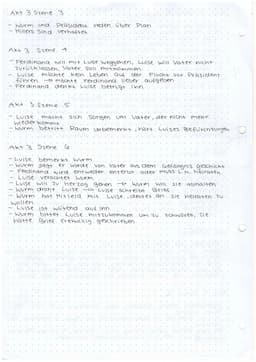 Akt 3 Szene 3
- Wurm und Präsident reden über Plan
- Millers sind verhaftet
Akt 3 Szene 4
- Ferdinand will mit Luise weggehen, Luise will Vater nicht
zurücklassen, Vater soll mitkommen
- Luise möchte kein Leben auf der Flucht vor Präsident
führen → möchte Ferdinand lieber aufgeben
- Ferdinand denkt Luise betrügt ihn
Akt 3 Szene 5
- Luise macht sich Sorgen um Vater, der nicht mehr
wiederkommt
- Wurm betritt Raum unbemerkt, hört Luises Befürchtungen
Akt 3 Szene 6
- Luise bemerkt Wurm
- Wurm sagt er wurde von Vater aus dem Gefängnis geschickt
- Ferdinand wird entweder enterbt oder muss L.M. heiraten
- Luise verachtet Wurm
- Luise will zu Herzog gehen → Wurm will sie abhalten
- Wurm droht Luise → Luise schreibt Brief
- Wurm hat Mitleid mit Luise, denkt an sie heiraten zu
wollen
- Luise ist wütend auf ihn
- Wurm bittet Luise mitzukommen um zu schwören, sie
hätte Brief freiwillig geschrieben